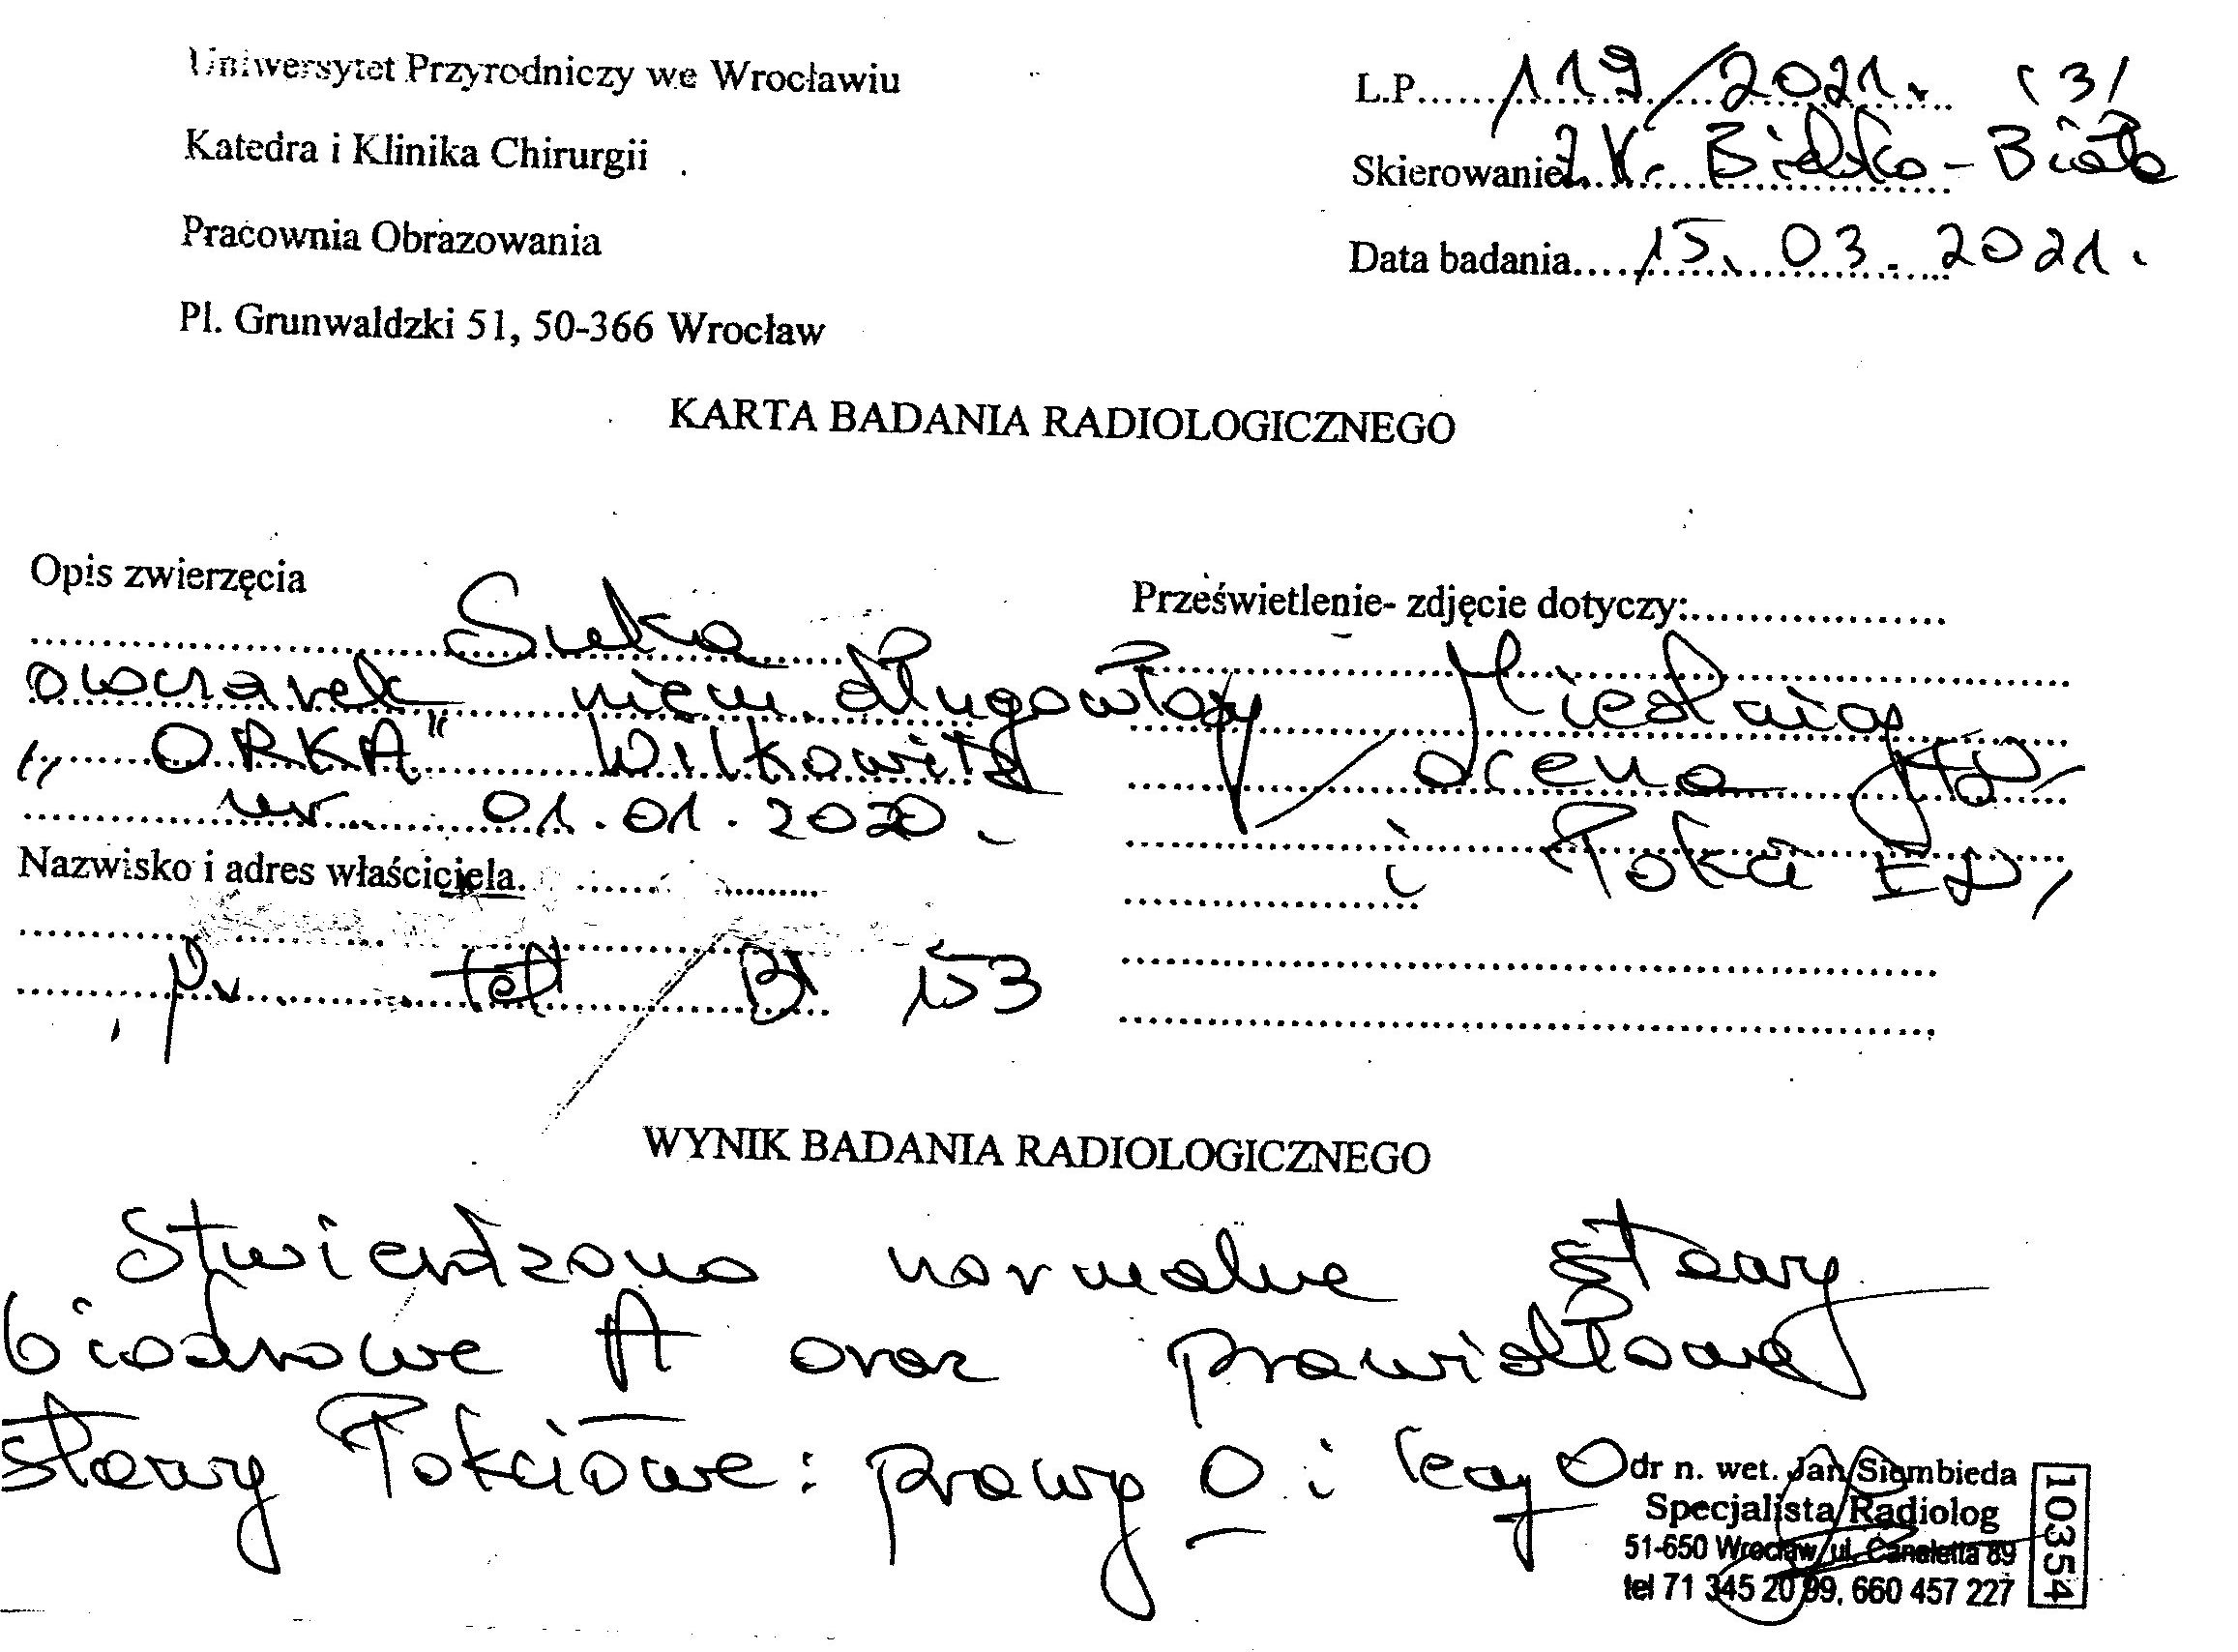 Uniwersytet Przyrodniczy we Wrocławiu
Katedra i Klinika Chirurgii
Pracownia Obrazowania
Pl. Grunwaldzki 51, 50-366 Wrocław
L.P. 119/2021. (3)
Skierowanie Z.K. Bielsko-Biała
Data badania 15.03.2021.
KARTA BADANIA RADIOLOGICZNEGO
Opis zwierzęcia
Suka
owczarek niem. długowłosy
"ORKA" Wilkowice
ur. 01.01.2020.
Nazwisko i adres właściciela.
nr. tat. 153
Prześwietlenie- zdjęcie dotyczy:
Miednica
ocena HD,
i łokci ED,
WYNIK BADANIA RADIOLOGICZNEGO
Stwierdzono normalne stawy
biodrowe A oraz prawidłowe
stawy łokciowe: prawy 0 i lewy 0
dr n. wet. Jan Siembieda
Specjalista Radiolog
51-650 Wrocław, ul. Canaletta 89
tel 71 345 20 99, 660 457 227
10354